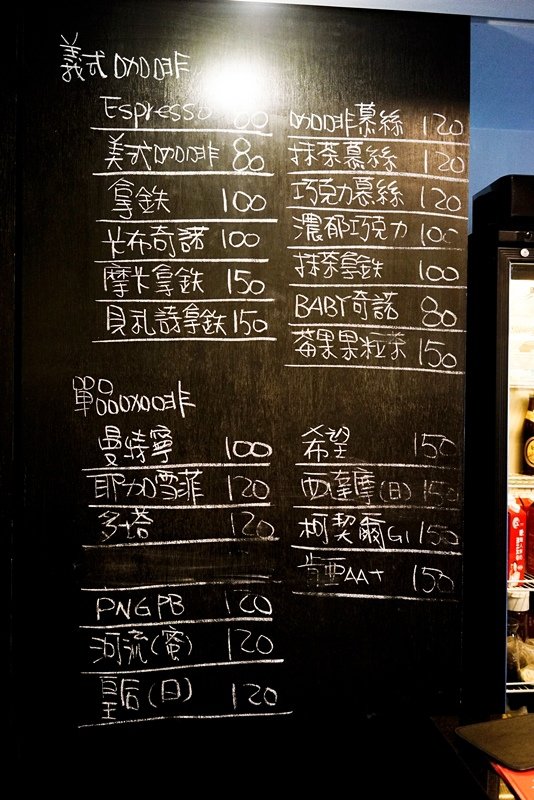 義式咖啡
Espresso 80
美式咖啡 80
拿鉄 100
卡布奇諾 100
摩卡拿鉄 150
貝礼詩拿鉄 150
咖啡慕絲 120
抹茶慕絲 120
巧克力慕絲 120
濃郁巧克力 100
抹茶拿鉄 100
BABY奇諾 80
莓果果粒茶 150
單品咖啡
曼特寧 100
耶加雪菲 120
多塔 120
PNGPB 120
河流(蜜) 120
皇后(日) 120
希望 150
西達摩(日) 150
柯契爾G1 150
肯亞AA+ 150